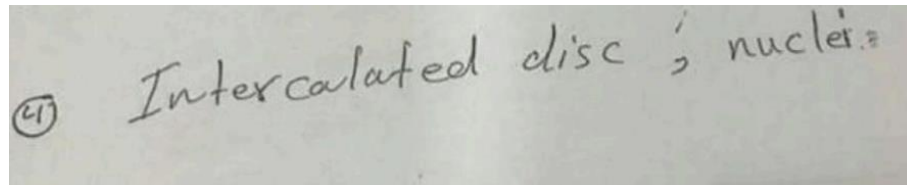 ④ Intercalated disc ; nuclei.